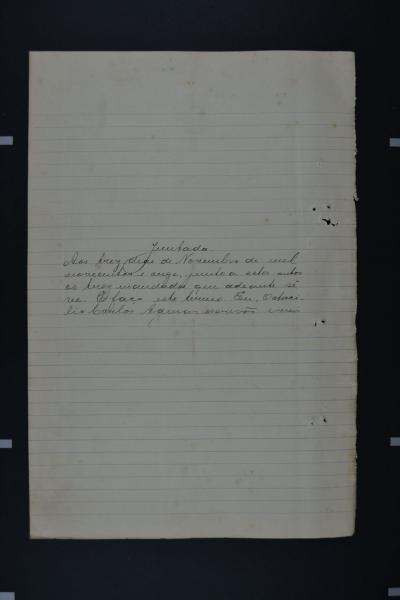 Juntada
Aos trez dias de Novembro de mil
novecentos e onze, junto a estes autos
os trez mandados que adeante se
ve. E faço este termo. Eu, Octaci-
lio Carlos escrivão